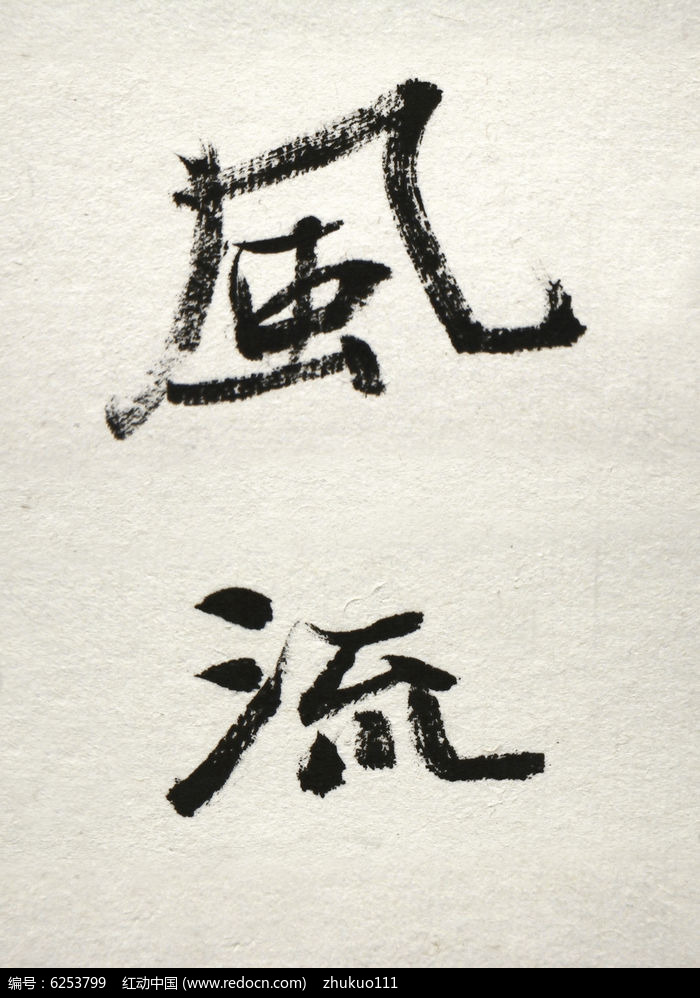 風
流
编号：6253799 红动中国 (www.redocn.com) zhukuo111